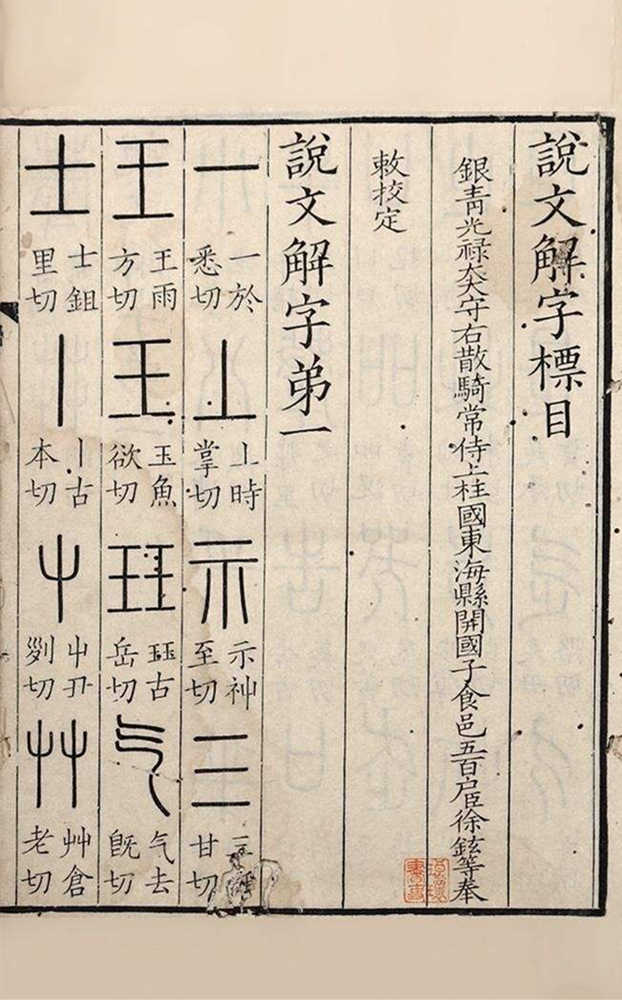 說文解字標目
銀青光祿大夫守右散騎常侍上柱國東海縣開國子食邑五百戶臣徐鉉等奉
敕挍定
說文解字弟一
一 一於悉切 丄 丄時掌切 示 示神至切 三 三 甘切
王 王雨方切 玉 玉魚欲切 玨 玨古岳切 气 气去旣切
士 士鉏里切 丨 丨古本切 屮 屮丑列切 艸 艸倉老切